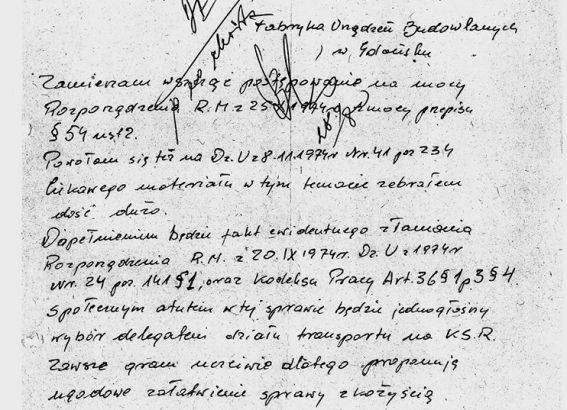 Fabryka Urządzeń Budowlanych
w Gdańsku
Zamierzam wszcząć postępowanie na mocy
Rozporządzenia R.M. z 25 1974 z mocy przepisu
§ 54 ust 2.
Powołam się też na Dz. U z 8.11.1974r Nr. 41 poz 234
Ciekawego materiału w tym temacie zebrałem
dość dużo.
Dopełnieniem będzie fakt ewidentnego złamania
Rozporządzenia R.M. z 20.IX 1974r. Dz. U z 1974r
Nr. 24 poz. 141 § 1, oraz Kodeksu Pracy Art. 36 § 1 p 3 § 4.
Społecznym atutem w tej sprawie będzie jednogłośny
wybór delegatem działu transportu na K.S.R.
Zawsze gram uczciwie dlatego proponuję
ugodowe załatwienie sprawy z korzyścią